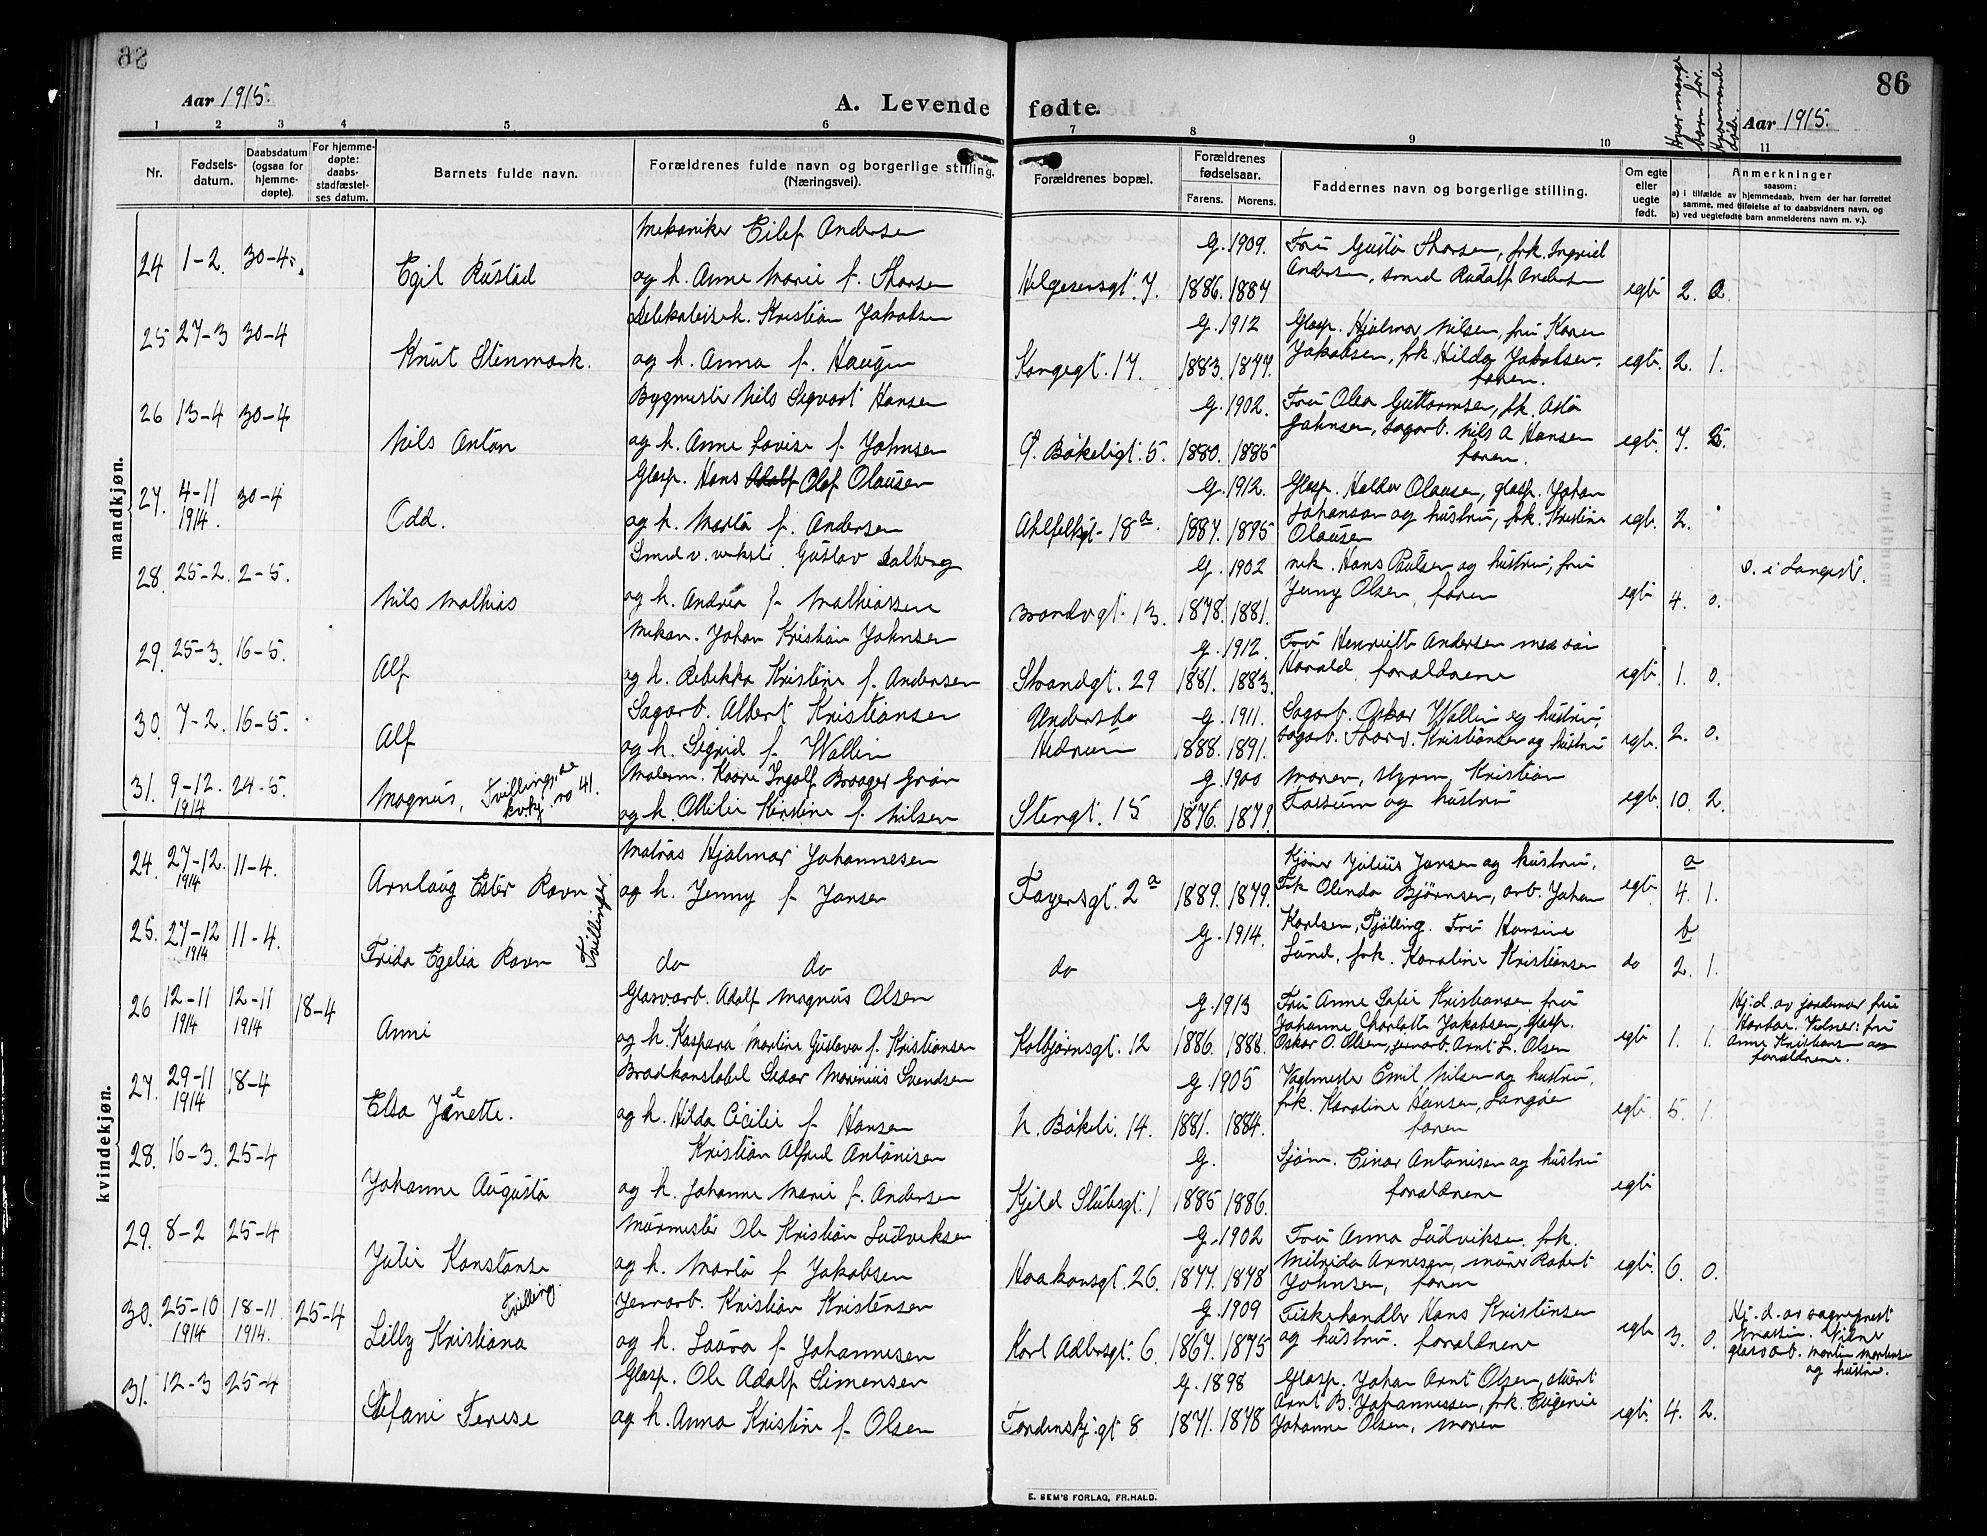 86
Aar 1915.
A. Levende fødte.
Hvor mange barn før.
Aar 1915.
1 2 3 4 5 6 7 8 9 10 11
Nr.
Fødsels-
datum.
Daabsdatum
(ogsaa for
hjemme-
døpte).
For hjemme-
døpte:
daabs-
stadfæstel-
ses datum.
Barnets fulde navn.
Forældrenes fulde navn og borgerlige stilling.
(Næringsvei).
Forældrenes bopæl.
Forældrenes
fødselsaar.
Farens. Morens.
Faddernes navn og borgerlige stilling.
Om egte
eller
uegte
født.
Anmerkninger
saasom:
a) i tilfælde av hjemmedaab, hvem der har forrettet
samme, med tilføielse af to daabsvidners navn, og
b) ved uegtefødte barn anmelderens navn m. v.).
mandkjøn.
Mekaniker Eilef Andersen G. 1909. Fru Gusta Thorsen, frk. Ingrid
24 1-2. 30-4. Egil Rustad og h. Anne Marie f. Thorsen Helgesensgt. 7. 1886. 1887 Andersen, smed Rudolf Andersen egte 2. 0
Delikatesseh. Kristian Jakobsen G. 1912 Glasp. Hjalmar Nilsen, fru Karen
25 27-3 30-4 Knut Stenmark. og h. Anna f. Haugen Kongegt. 17. 1883. 1877. Jakobsen, frk Hilda Jakobsen, egte. 2. 1.
faren.
Bygmester Nils Sigvart Hansen G. 1902. Fru Olea Guttormsen, frk. Asta
26 13-4 30-4 Nils Anton og h. Anne Lovise f. Johnsen Ø. Bøkeligt. 5. 1880. 1885 Johnsen, sagarb. Nils A Hansen egte. 7.
faren.
Glasp. Hans Olaf Olausen G. 1912. Glasp. Halvor Olausen, glasp. Johan
27. 4-11 1914. 30-4 Odd. og h. Marta f. Andersen Ahlfeltsgt. 18a. 1887. 1895 Johanson og hustru, frk. Kristine egte. 2.
Olausen
Smed v. verkste. Gustav Dalberg G. 1902 mek. Hans Paulsen og hustru, fru D. i Langest.
28. 25-2. 2-5. Nils Mathias og h. Andrea f. Mathiassen Brandvgt. 13. 1878. 1881. Jenny Olsen, faren egte 4. 0.
Mekan. Johan Kristian Johnsen G. 1912. Fru Henriette Andersen med søn
29. 25-3. 16-5. Alf og h. Rebekka Kristine f. Andersen Strandgt. 29 1881. 1883. Harald forældrene egte. 1. 0.
Sagarb. Albert Kristiansen Undersbo G. 1911. Sagarb. Oskar Wallin og hustru,
30. 7-2. 16-5. Alf og h. Sigrid f. Wallin Hedrum 1888. 1891. sagarb. Thorv. Kristiansen og hustru egte. 2. 0.
31. 9-12. 1914 24-5. Magnus, Tvilling, se kvkj. no 41. Malerm. Kaare Ingolf Braager Grøn G. 1900 Moren, styrm. Kristian
og h. Ottilie Kirstine f. Nilsen Stengt. 15 1876. 1879. Forsum og hustru egte. 10. 2.
kvindekjøn.
Matros Hjalmar Johannesen Kjører Julius Jansen og hustru, a
24. 27-12. 1914 11-4. Arnlaug Ester Ravn og h. Jenny f. Jansen Fayersgt. 2a 1889. 1879. Frk Olinda Bjørnsen, arb. Johan egte 4. 1.
Tvillinger
G. 1914. Karlsen, Tjølling. Fru Hansine b
25. 27-12 1914 11-4. Frida Egelia Ravn do do do Lund, frk. Karoline Kristiansen do 2. 1.
26 12-11 1914 12-11 1914 18-4 Anni Glasvarb. Adolf Magnus Olsen G. 1913 Fru Anne Sofie Kristiansen fru
og h. Kaspara Martine Gustava f. Kristiansen Kolbjørnsgt. 12 1886. 1888. Johanne Charlotte Jakobsen, glasp.
Oskar O. Olsen, jernarb. Arnt L. Olsen egte 1. 1.
Hj. d. av jordemor fru
Vidner: fru
Anne Kristiansen og
forældrene.
Brandkonstabel Sidor Marinius Svendsen G. 1905 Vagtmester Emil Nilsen og hustru,
27. 29-11 1914 18-4 Elsa Jenette. og h. Hilda Cecilie f. Hansen N. Bøkeli. 14. 1881. 1884. frk. Karoline Hansen, Langøen egte 5. 1.
faren
Kristian Alfred Antonisen G. Sjøm. Einar Antonisen og hustru
28. 16-3. 25-4 Johanne Augusta og h. Johanne Marie f. Andersen Kjeld Stubsgt. 1 1885 1886. forældrene egte
Murmester Ole Kristian Ludviksen G. 1902 Fru Anna Ludviksen. frk.
29. 8-2 25-4 Julie Konstanse og h. Marta f. Jakobsen Haakonsgt. 26. 1877. 1878 Milrida Arnesen, murer Robert egte. 6. 0.
Johnsen, faren
Tvilling.
30. 25-10 1914 18-11 1914. 25-4 Lilly Kristiana Jernarb. Kristian Kristensen G. 1909 Fiskehandler Hans Kristensen
og h. Laura f. Johannesen Karl Adlersgt. 6. 1867. 1875 og hustru. forældrene egte 3. 0.
Hj. d. av sogneprest
Vidner
glassarb. Martin Martinsen
og hustru.
Glasp. Ole Adolf Simensen G. 1898 Glasp. Johan Arnt Olsen,
31. 12-3 25-4 Stefani Terese og h. Anna Kristine f. Olsen Tordenskj. gt 8 1871. 1878 Arnt B. Johannessen, frk. Eugenie egte. 4. 2.
Johanne Olsen, moren
E. SEM'S FORLAG, FR.HALD.